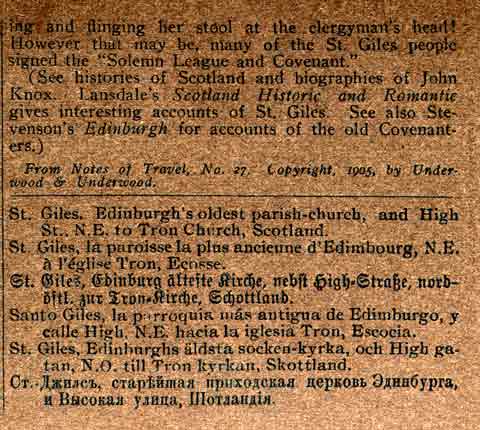 ing and flinging her stool at the clergyman's head!
However that may be, many of the St. Giles people
signed the "Solemn League and Covenant."
(See histories of Scotland and biographies of John
Knox. Lansdale's Scotland Historic and Romantic
gives interesting accounts of St. Giles. See also Ste-
venson's Edinburgh for accounts of the old Covenant-
ers.)
From Notes of Travel, No. 27, Copyright, 1905, by Under-
wood & Underwood.
St. Giles, Edinburgh's oldest parish-church, and High
St., N.E. to Tron Church, Scotland.
St. Giles, la paroisse la plus ancienne d'Edimbourg, N.E.
à l'église Tron, Ecosse.
St. Giles, Edinburg älteste Kirche, nebst High-Straße, nord-
östl. zur Tron-Kirche, Schottland.
Santo Giles, la parroquia más antigua de Edimburgo, y
calle High, N.E. hacia la iglesia Tron, Escocia.
St. Giles, Edinburghs äldsta socken-kyrka, och High ga-
tan, N.O. till Tron kyrkan, Skottland.
Ст. Джилсъ, старѣйшая приходская церковь Эдинбурга,
и Высокая улица, Шотландія.